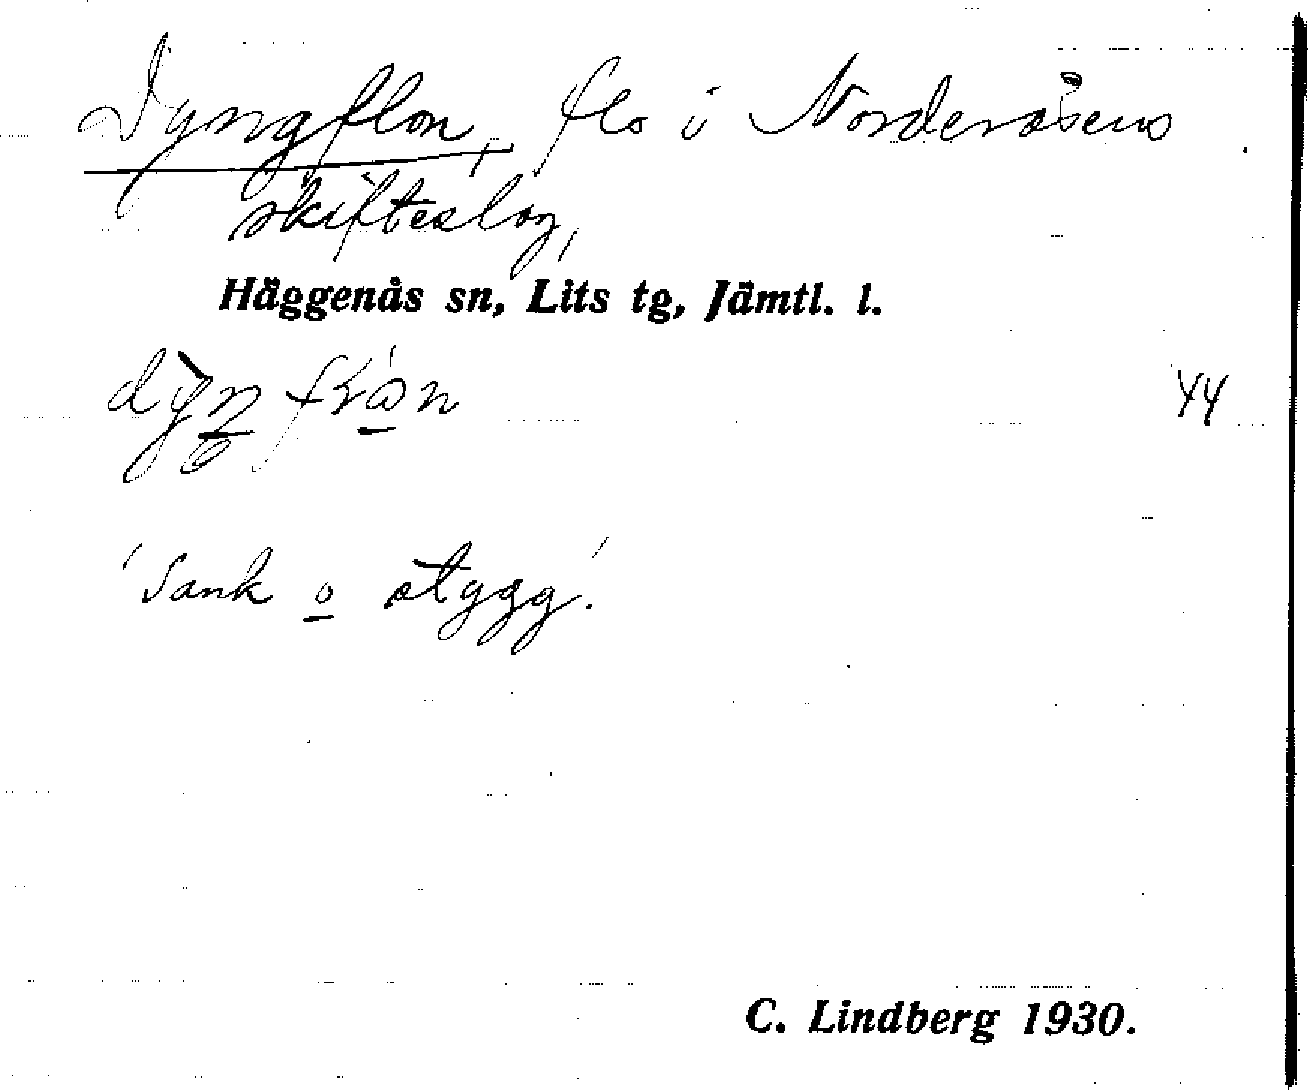 Dyngflon, flo i Norderåsens
skifteslag,
Häggenås sn, Lits tg, Jämtl. l.
44
'Sank o stygg'.
C. Lindberg 1930.